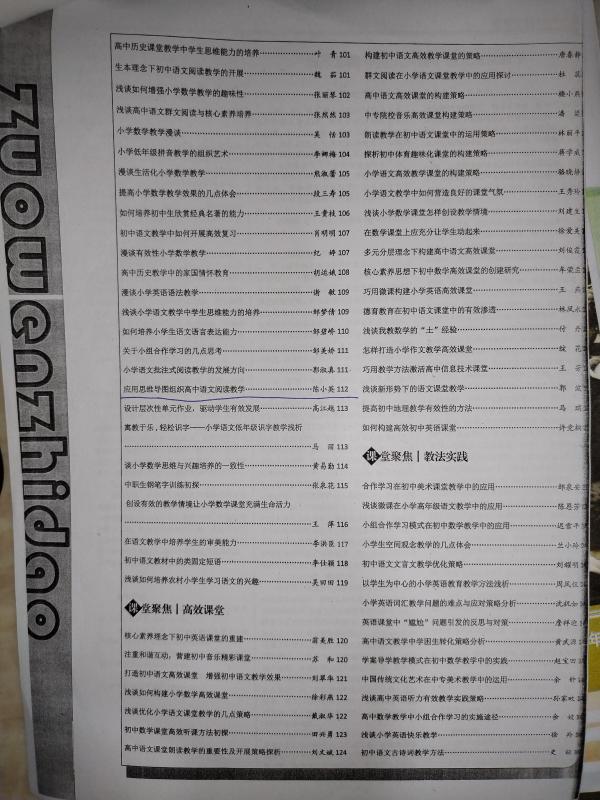 zuowenzhidao
高中历史课堂教学中学生思维能力的培养……叶 青 101
生本理念下初中语文阅读教学的开展……魏 茹 101
浅谈如何增强小学数学教学的趣味性……张丽琴 102
浅谈高中语文群文阅读与核心素养培养……张然然 103
小学数学教学漫谈……吴 恬 103
小学低年级拼音教学的组织艺术……李娜梅 104
漫谈生活化小学数学教学……熊淑蕾 105
提高小学数学教学效果的几点体会……段三寿 105
如何培养初中生欣赏经典名著的能力……王贵枝 106
初中语文教学中如何开展高效复习……肖明明 107
漫谈有效性小学数学教学……纪 婷 107
高中历史教学中的家国情怀教育……胡运娥 108
漫谈小学英语语法教学……谢 敏 109
浅谈小学语文教学中学生思维能力的培养……邹梦倩 109
如何培养小学生语文语言表达能力……邹碧峤 110
关于小组合作学习的几点思考……邹美娇 111
小学语文批注式阅读教学的发展方向……郭淑真 111
应用思维导图组织高中语文阅读教学……陈小英 112
设计层次性单元作业，驱动学生有效发展……高江超 113
寓教于乐，轻松识字——小学语文低年级识字教学浅析
……马 丽 113
谈小学数学思维与兴趣培养的一致性……黄易勤 114
中职生钢笔字训练初探……张泉花 115
创设有效的教学情境让小学数学课堂充满生命活力
……王 萍 116
在语文教学中培养学生的审美能力……李洪臣 117
初中语文教材中的类固定短语……李仕颖 118
浅谈如何培养农村小学生学习语文的兴趣……吴田田 119
课堂聚焦｜高效课堂
核心素养理念下初中英语课堂的重建……翁美胜 120
注重和谐互动，营建初中音乐精彩课堂……苏 和 120
打造初中语文高效课堂 增强初中语文教学效果……刘翠华 121
浅谈如何构建小学数学高效课堂……徐彩燕 122
浅谈优化小学语文课堂教学的几点策略……戴淑华 122
初中数学课堂高效听课方法初探……田兴勇 123
高中语文课堂朗读教学的重要性及开展策略探析……刘文斌 124
构建初中语文高效教学课堂的策略……唐春静
群文阅读在小学语文课堂教学中的应用探讨……杜
高中语文高效课堂的构建策略……小燕
中专院校音乐高效课堂构建策略……潘
朗读教学在初中语文课堂中的运用策略……林丽平
探析初中体育趣味化课堂的构建策略……蒋学
小学语文高效教学课堂的构建策略……骆晓
小学语文教学中如何营造良好的课堂气氛……王秀
浅谈小学数学课堂怎样创设教学情境……刘建
在数学课堂上应充分让学生动起来……徐爱
多元分层理念下构建高中语文高效课堂……刘俊
核心素养思想下初中数学高效课堂的创建研究……牟荣
巧用微课构建小学英语高效课堂……王
德育教育在初中语文课堂中的有效渗透……林凤
浅谈我教数学的“土”经验……付
怎样打造小学作文教学高效课堂……
巧用教学方法激活高中信息技术课堂……王
浅谈新形势下的语文课堂教学……郭
提高初中地理教学有效性的方法……马
如何构建高效初中英语课堂……许
课堂聚焦｜教法实践
合作学习在初中美术课堂教学中的应用……郎泉
浅谈微课在小学高年级语文教学中的应用……陈恩
小组合作学习模式在初中数学教学中的应用……迟雷
小学生空间观念教学的几点体会……兰小
初中语文文言文教学优化策略……刘耀
以学生为中心的小学英语教育教学方法浅析……周凤
小学英语词汇教学问题的难点与应对策略分析……沈
英语课堂中“尴尬”问题引发的反思与对策……詹祥
高中语文教学中学困生转化策略分析……黄武
学案导学教学模式在初中数学教学中的实践……赵宝
中国传统文化艺术在中专美术教学中的运用……余
浅谈高中英语听力有效教学实践策略……孙家
高中数学教学中小组合作学习的实施途径……余
浅谈小学英语快乐教学……徐
初中语文古诗词教学方法……史